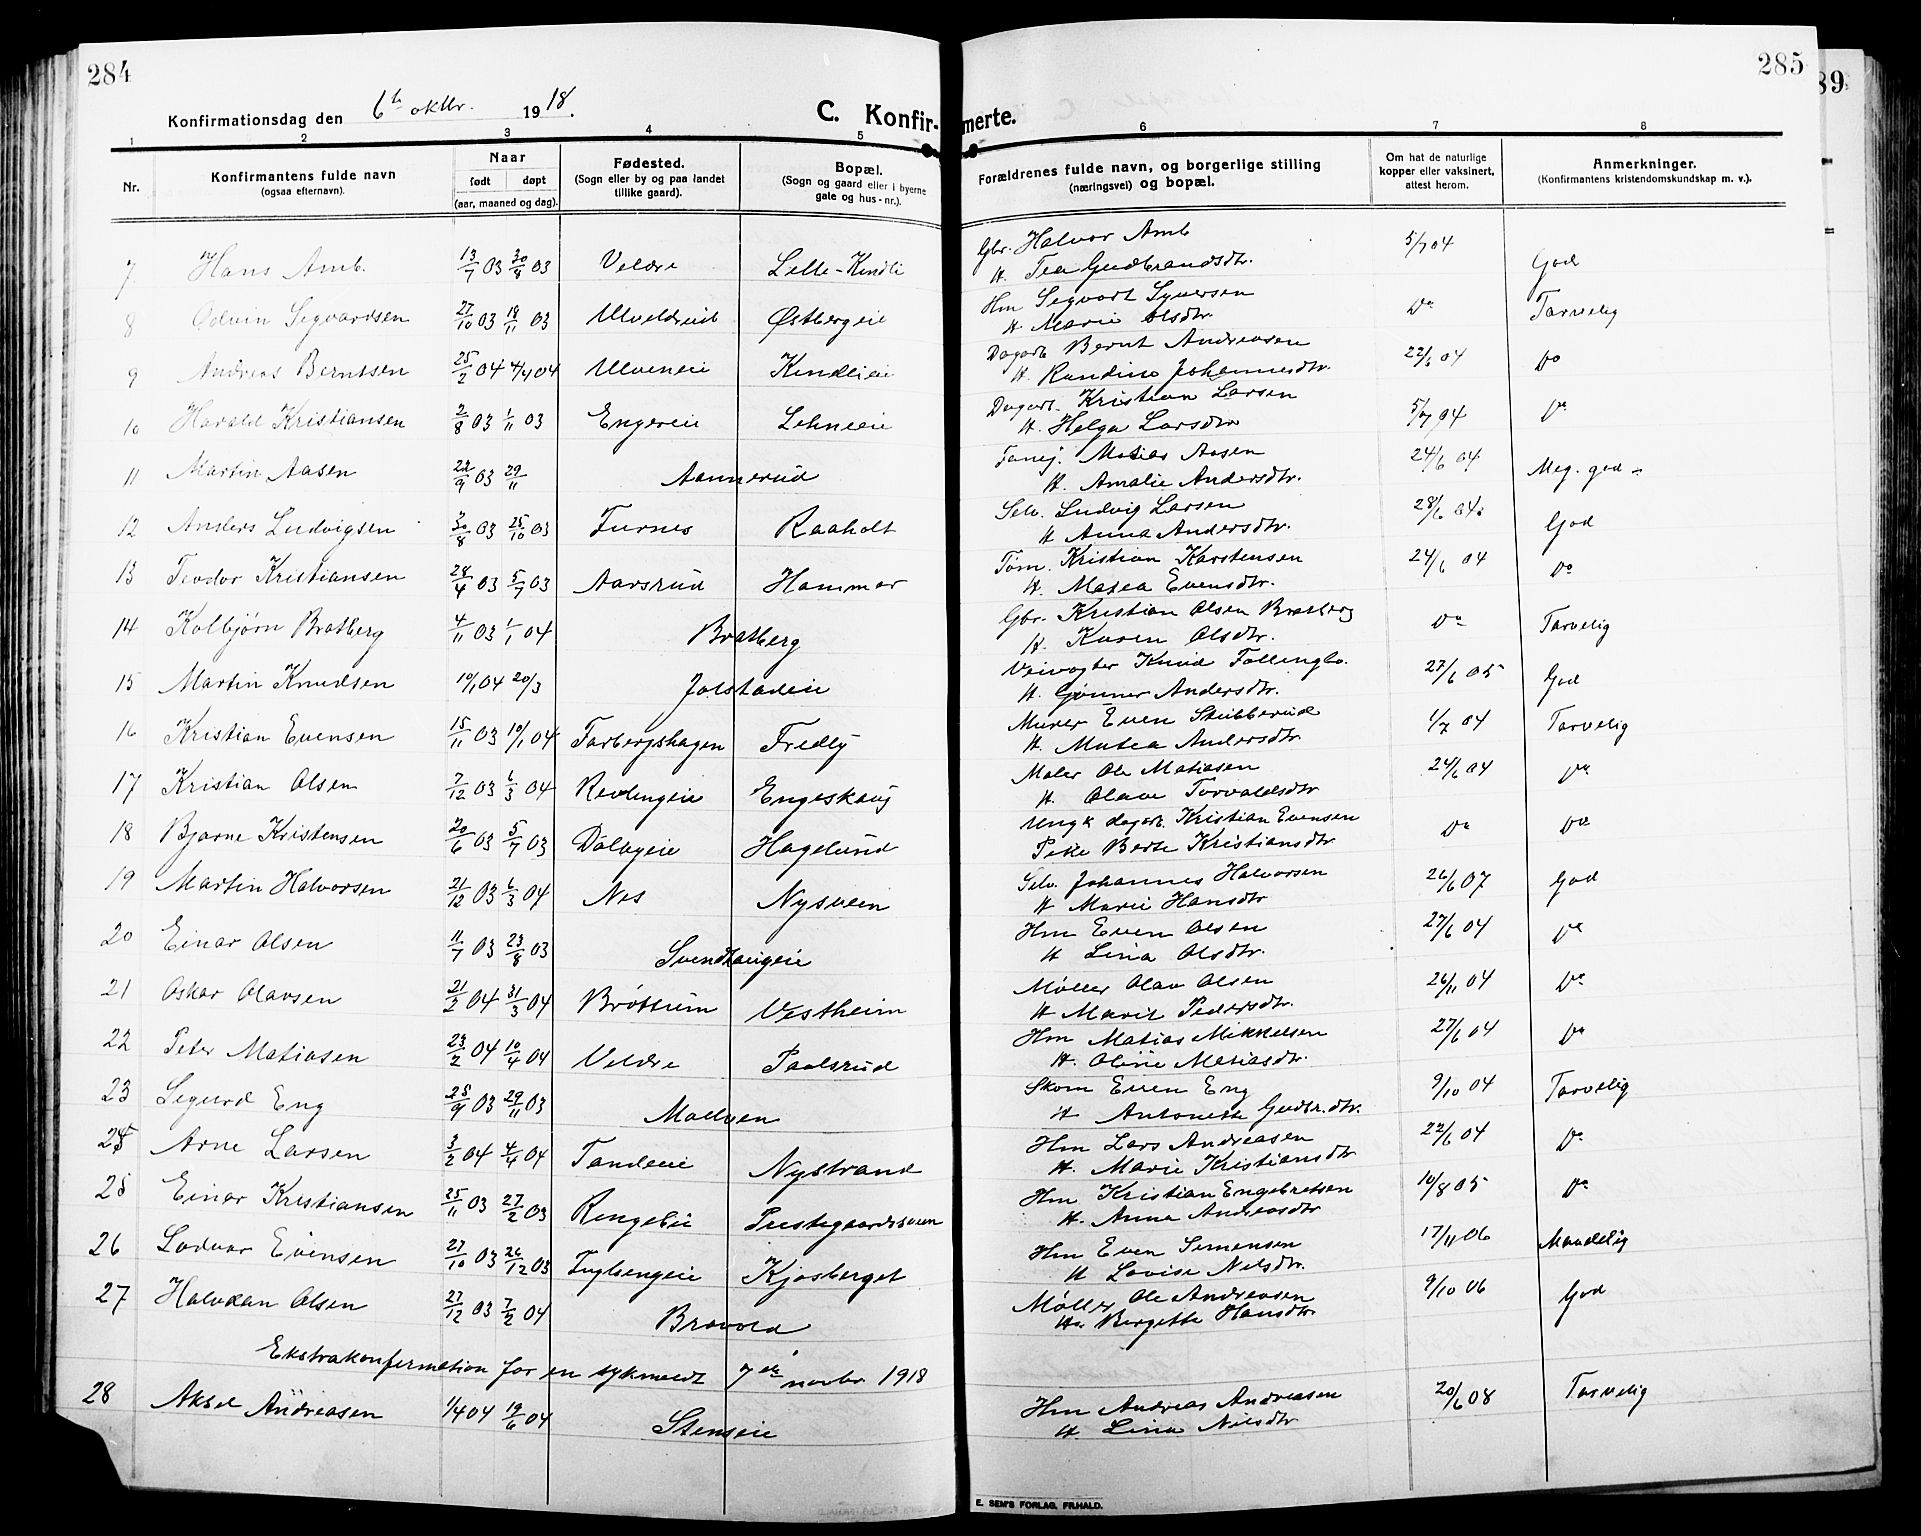 284
285
89
Konfirmationsdag den 6te oktbr. 1918.
C. Konfirmerte.
1 2 3 4 5 6 7 8
Nr.
Konfirmantens fulde navn (ogsaa efternavn).
Naar født døpt (aar, maaned og dag).
Fødested. (Sogn eller by og paa landet tillike gaard).
Bopæl. (Sogn og gaard eller i byerne gate og hus-nr.).
Forældrenes fulde navn, og borgerlige stilling (næringsvei) og bopæl.
Om hat de naturlige kopper eller vaksinert, attest herom.
Anmerkninger. (Konfirmantens kristendomskundskap m. v.).
7 Hans Amb. 13/7 03 30/8 03 Veldre Lille-Kindli Gbr. Halvor Amb 5/7 04 God
H. Tea Gudbrandsdtr.
8 Odvin Segvardsen 27/10 03 18/11 03 Østbergeie Hm Segvart Syversen Do Tarvelig
H. Marie Olsdtr
9 Andreas Berntsen 25/2 04 4/4 04 Ulveneie Kindlieie Dagarb Bernt Andreasen 22/6 04 Do
H. Randine Johannesdtr.
10 Harald Kristiansen 2/8 03 1/11 03 Engereie Lehneie Dagarb. Kristian Larsen 5/7 04 Do
H. Helga Larsdtr
11 Martin Aasen 22/9 03 29/11 Aannerud Matias Aasen 24/6 04 Meg. god
H. Amalie Andersdtr.
12 Anders Ludvigsen 30/8 03 25/10 03 Furnes Raaholt Selv. Ludvig Larsen 28/6 04 God
H Anna Andersdtr.
13 Teodor Kristiansen 28/4 03 5/7 03 Aarsrud Hammer Tøm. Kristian Karstensen 24/6 04 Do
H. Matea Evensdtr.
14 Kolbjørn Bratberg 4/11 03 1/1 04 Bratberg Gbr. Kristian Olsen Bratberg Do Tarvelig
H. Karen Olsdtr.
15 Martin Knudsen 10/1 04 20/3 Jolstadeie Veivogter Knud Follinglo. 27/6 05 God
H. Gunner Andersdtr.
16 Kristian Evensen 15/11 03 10/1 04 Farbergshagen Fredly Murer Even Stubberud 1/7 04 Tarvelig
H. Matea Andersdtr.
17 Kristian Olsen 7/12 03 6/3 04 Redengeie Engeskaug Maler Ole Matiasen 24/6 04 Do
H. Olave Torvaldsdtr
18 Bjarne Kristensen 20/6 03 5/7 03 Dalageie Hagelund Ungk dagarb. Kristian Evensen Do Do
Pike Berte Kristiansdtr
19 Martin Halvorsen 21/12 03 6/3 04 Nes Nysveen Selv. Johannes Halvorsen 26/6 07 God
H Marie Hansdtr
20 Einar Olsen 11/7 03 23/8 03 Svendhaugeie Hm Even Olsen 27/6 04 Do
H Lina Olsdtr.
21 Oskar Olavsen 21/2 04 31/3 04 Brøttum Vestheim Møller Olav Olsen 26/11 04 Do
H Marit Pedersdtr.
22 Peter Matiasen 23/2 04 10/4 04 Veldre Paalsrud Hm Matias Mikkelsen 27/6 04 Do
H. Oline Matiasdtr.
23 Segurd Eng 28/9 03 29/11 03 Moelven Skom Even Eng 9/10 04 Tarvelig
H Antonette Gudbr.dtr.
24 Arne Larsen 3/2 04 4/4 04 Tandeeie Nystrand Hm Lars Andreasen 22/6 04 Do
H. Marie Kristiansdtr
25 Einar Kristiansen 25/11 03 27/2 03 Rengelie Prestegaardssveen Hm Kristian Engebretsen 10/8 05 Do
H. Anna Andreasdtr
26 Lodvar Evensen 27/10 03 26/12 03 Fuglsengeie Kjosberget Hm Even Simensen 17/11 06 Maadelig
H Lovise Nilsdtr.
27 Halvdan Olsen 27/12 03 7/2 04 Bravold Møller Ole Andreasen 9/10 06 God
Ha Bergette Hansdtr
Ekstrakonfirmation for en sykmeldt 7de novbr 1918
28 Aksel Andreasen 1/4 04 19/6 04 Stenseie Hm Andreas Andreasen 20/6 08 Tarvelig
H. Lina Nilsdtr
E. SEM'S FORLAG, FR.HALD.